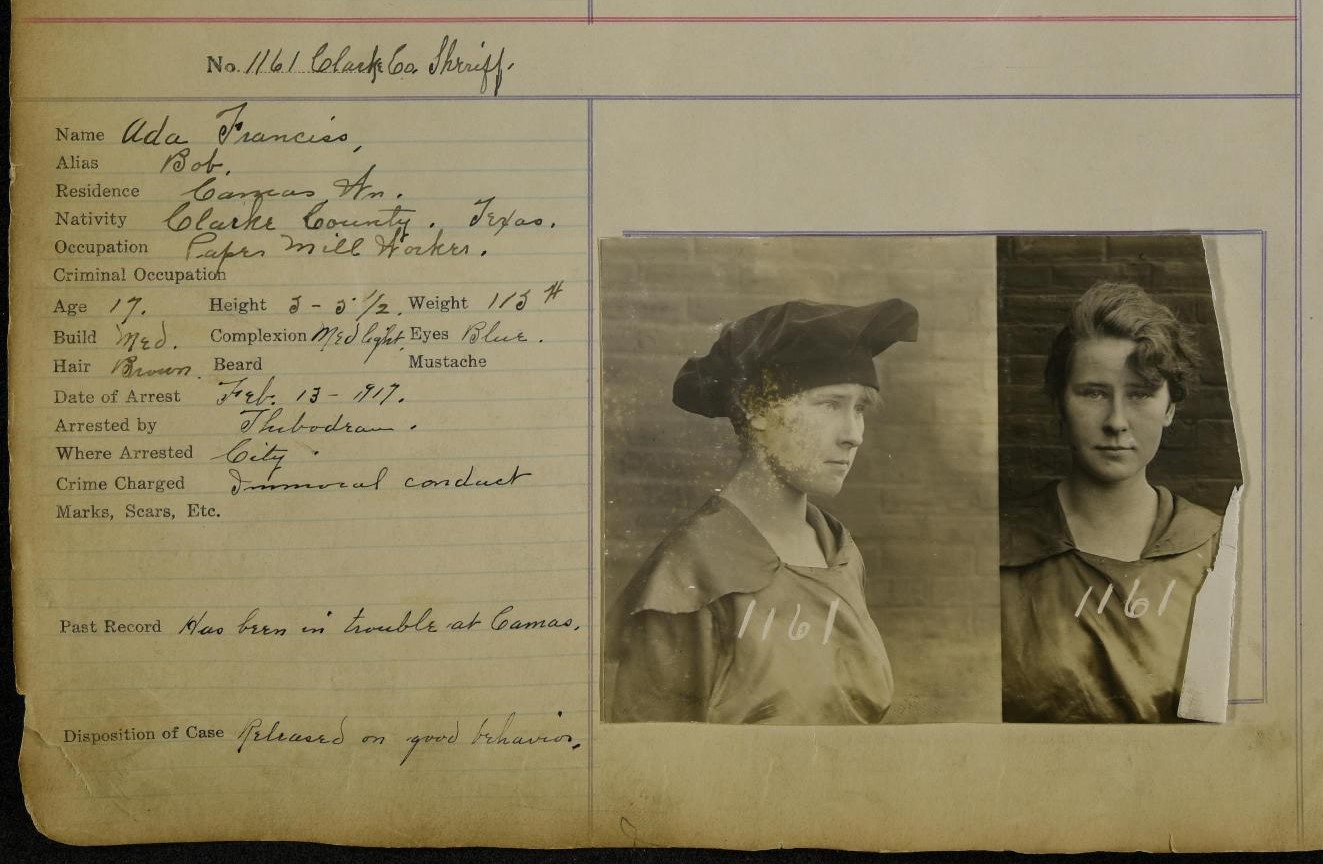 No. 1161 Clark Co. Shrriff.
Name Ada Franciss,
Alias Bob.
Residence Camas, Wn.
Nativity Clarke County. Texas.
Occupation Paper Mill Worker.
Criminal Occupation
Age 17. Height 5 - 5 1/2. Weight 113 #
Build Med. Complexion Med light. Eyes Blue.
Hair Brown. Beard Mustache
Date of Arrest Feb. 13 - 1917.
Arrested by
Where Arrested City.
Crime Charged Immoral conduct
Marks, Scars, Etc.
Past Record Has been in trouble at Camas.
Disposition of Case Released on good behavior.
1161
1161